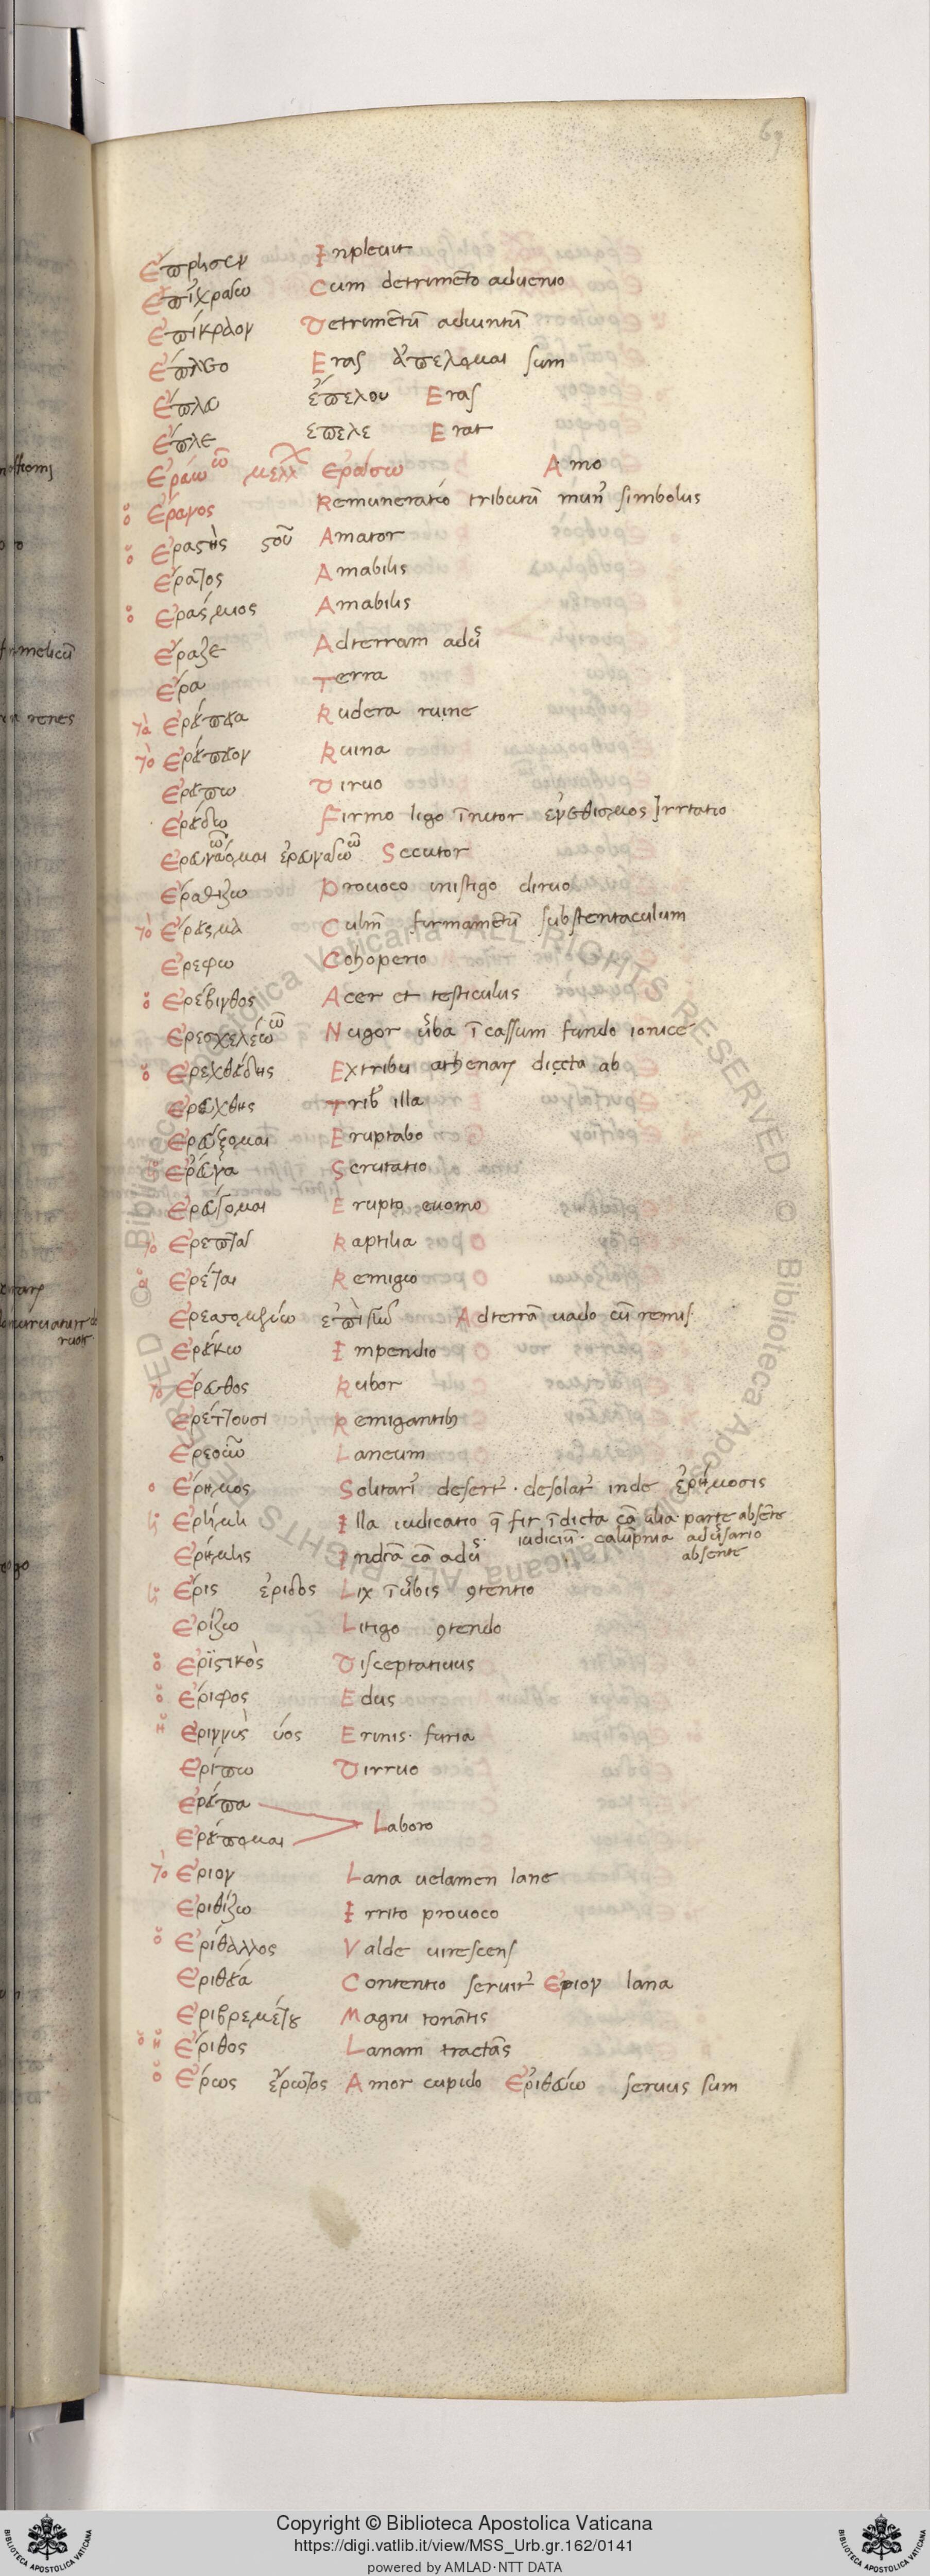 69
ἔπρησεν Inpleuit
ἐπίχραίω Cum detrimēto aduenio
ἐπίκραον Detrimētū aduūtū
ἔπλεο Eras ἀπελομαι sum
ἔπλου ἔπελου Eras
ἔπλε ἔπελε Erat
ἐράω ῶ μελλ ἐράσω Amo
ὁ ἔρανος Remuneratio tributū mun̄ simbolus
ὁ ἐραστὴς στοῦ Amator
ἐρατος Amabilis
ὁ ἐράσμιος Amabilis
ἔραζε Adterram adū
ἔρα Terra
τὰ ἐρείπεια Rudera ruine
τὸ ἐρείπειον Ruina
ἐρείπω Diruo
ἐρείδω Firmo ligo īnitor ἐνεθισμος Irrtatio
Secutor
ἐραθίζω Prouoco instigo diruo
τὸ ἔρεισμα Culm̄ firmamētū substentaculum
ἐρεφω Cohoperio
ὁ ἐρέβινθος Acer et testiculus
ἐρεσχελέω ῶ Nugor ūba ī cassum fundo ionice
ὁ ἐρεχθείδης Extribu athenarꝝ dicta ab
ἐρεχθης Trib illa
ἐρεύξομαι Eruptabo
ἔρευνα Scrutatio
ἐρεύγομαι Erupto euomo
τὸ ἑρπετα Raptilia
ἐρέται Remigio
Adterrā uado cū remis
ἐρείκω Impendio
τὸ ἔρευθος Rubor
ἐρέττουσι Remigantib
ἐρεοῦν Laneum
ὁ ἔρημος Solitari desert · desolat inde ἐρήμοσις
ἡ ἐρήμη Illa iudicatio q̄ fit īdicta cā alia parte absēte
ἐρήμης Indrā cā adū iudiciū · calūpnia adūsario
absente
ἡ ἔρις ἔριδος Lix īūbis ꝯtentio
ἐρίζω Litigo ꝯtendo
ὁ ἐριστικὸς Disceptatiuus
ὁ ἔριφος Edus
ἡ ἐριννὺς ύος Erinis · furia
ἐρίπω Dirruo
ἐρείπα
ἐρείπομαι Laboro
τὸ ἔριον Lana uelamen lane
ἐριθίζω Irrito prouoco
ὁ ἐριθαλλος Valde uirescens
ἐριθεία Contentio seruit ἔριον lana
ἐριβρεμέτου Magni tonātis
ὁ ἡ ἔριθος Lanam tractās
ὁ ἔρως ἔρωτος Amor cupido ἐριθεύω seruus sum
Copyright © Biblioteca Apostolica Vaticana
https://digi.vatlib.it/view/MSS_Urb.gr.162/0141
powered by AMLAD·NTT DATA